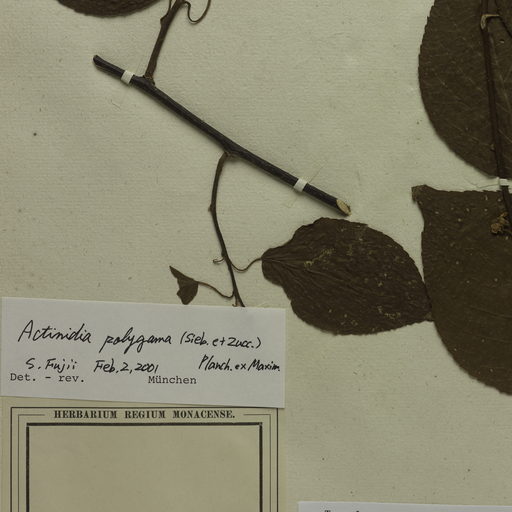 Actinidia polygama (Sieb. et Zucc.)
S. Fujii Feb. 2, 2001 Planch. ex Maxim.
Det. - rev. München
HERBARIUM REGIUM MONACENSE.